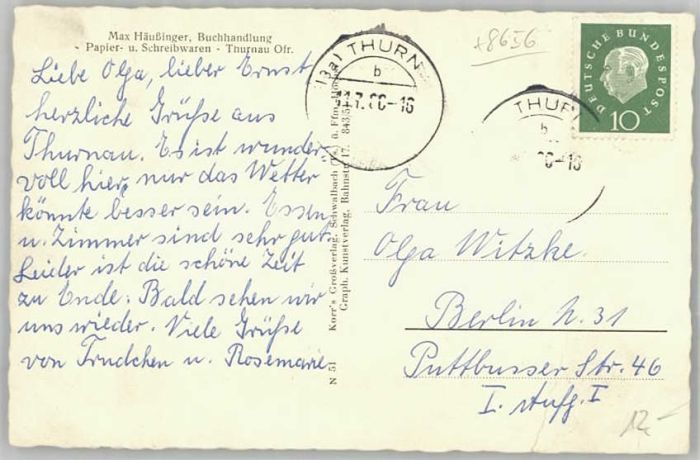 Max Häußinger, Buchhandlung
Papier- u. Schreibwaren - Thurnau Ofr.
Liebe Olga, lieber Ernst
herzliche Grüße aus
Thurnau. Es ist wunder-
voll hier, nur das Wetter
könnte besser sein. Essen
u. Zimmer sind sehr gut.
Leider ist die schöne Zeit
zu Ende. Bald sehen wir
uns wieder. Viele Grüße
von Trudchen u. Rosemarie
N 51
Korr's Großverlag, Schwalbach (Ts)
Graph. Kunstverlag, Bahnstr. 17.
(13a) THURN
b
11.7.60-16
+8656
DEUTSCHE BUNDESPOST
10
THUR
b
60-16
Frau
Olga Witzke.
Berlin N. 31
Puttbusser Str. 46
I. Aufg. I
12,-